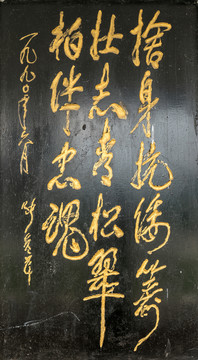 捨身抗倭
壮志青松翠
柏伴忠魂
一九九〇年六月